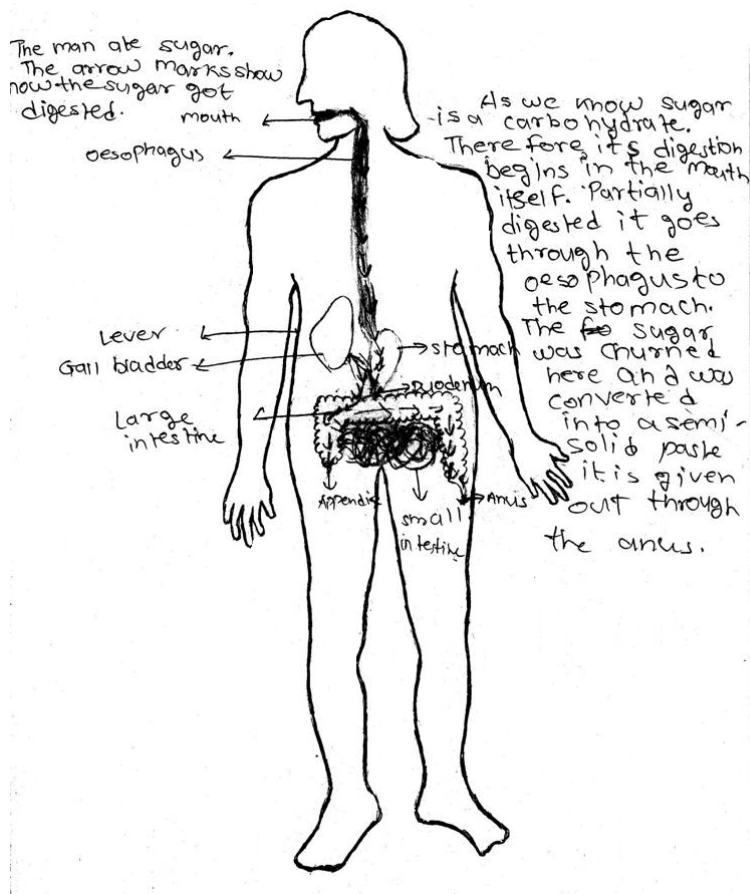 The man ate sugar.
The arrow marks show
how the sugar got
digested.
mouth
oesophagus
Lever
Gall bladder
Large
intestine
stomach
Duodenum
Appendix
small
intestine
Anus
As we know sugar
is a carbohydrate.
There fore, its digestion
begins in the mouth
itself. Partially
digested it goes
through the
oesophagus to
the stomach.
The sugar
was churned
here and was
converted
into a semi-
solid paste
it is given
out through
the anus.